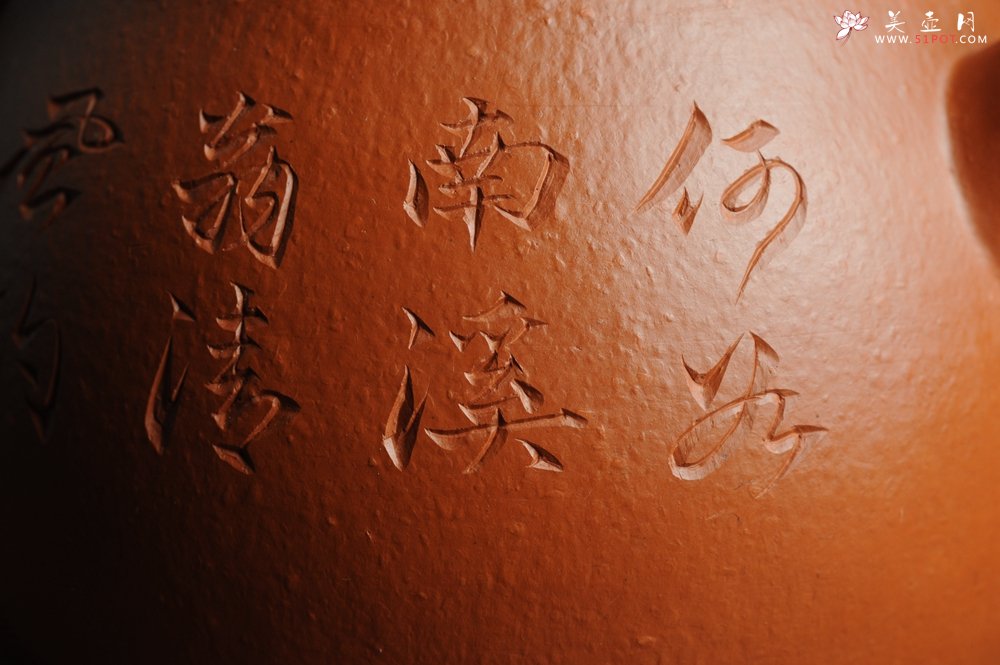 何如
南溪
翁清
美壶网
WWW.51POT.COM